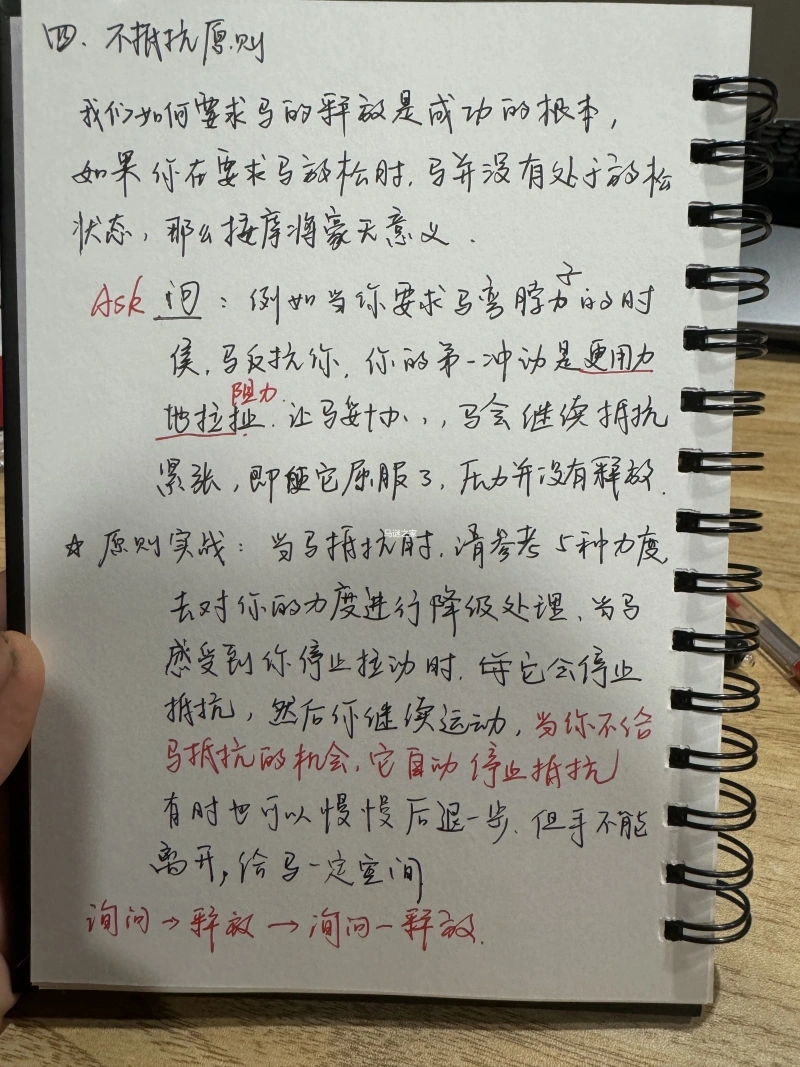 四、不抵抗原则
我们如何要求马的释放是成功的根本,
如果你在要求马放松时,马并没有处于放松
状态,那么按摩将豪无意义.
Ask 问:例如当你要求马弯脖子的时
侯,马反抗你,你的第一冲动是更用力
阻力
地拉扯.让马妥协...马会继续抵抗
紧张,即便它屈服了,压力并没有释放.
马谜之家
☆ 原则实战:当马抵抗时,请参考5种力度
去对你的力度进行降级处理,当马
感受到你停止拉动时.它会停止
抵抗,然后你继续运动,当你不给
马抵抗的机会,它自动停止抵抗
有时也可以慢慢后退一步.但手不能
离开,给马一定空间
询问→释放→询问—释放.